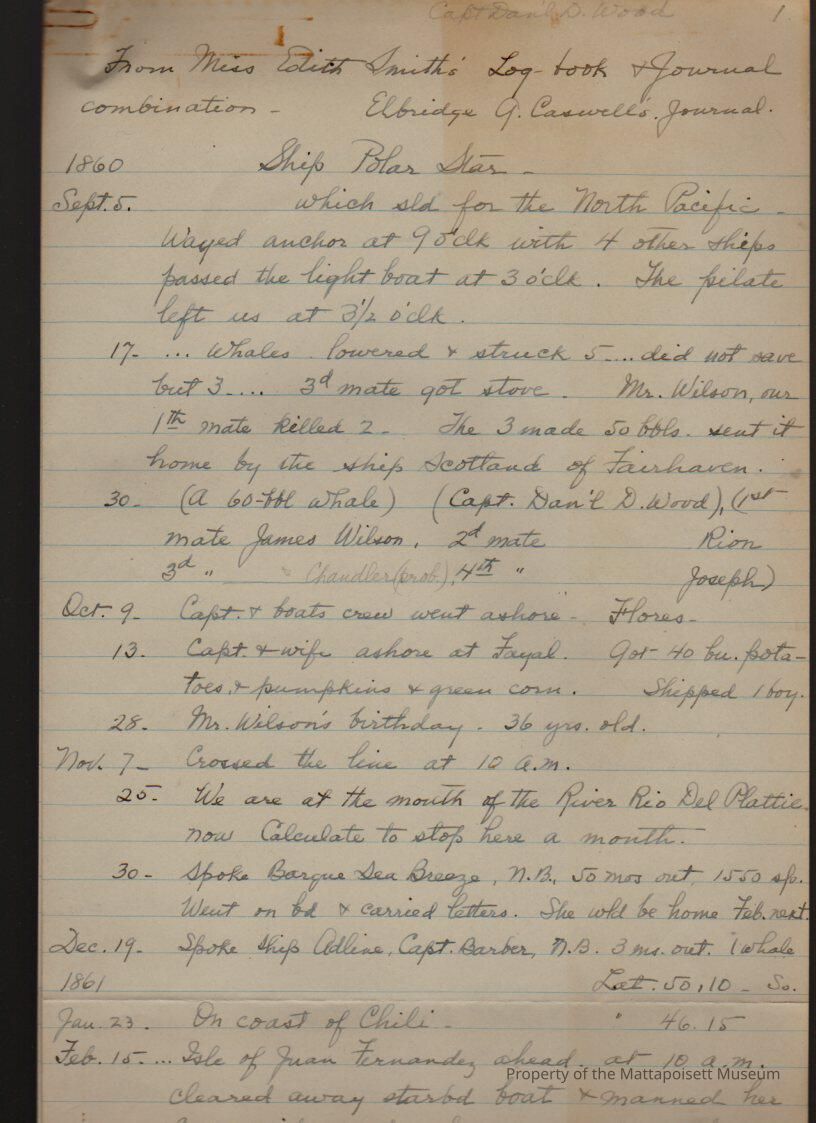 Capt Dan'l D. Wood 1
From Miss Edith Smith's Log-book & Journal
combination - Elbridge G. Caswell's Journal.
1860 Ship Polar Star -
Sept. 5. which sld for the North Pacific -
Wayed anchor at 9 o'clk with 4 other ships
passed the light boat at 3 o'clk. The pilate
left us at 3 1/2 o'clk.
17- ... Whales lowered & struck 5.... did not save
but 3.... 3d mate got stove. Mr. Wilson, our
1th mate killed 2- The 3 made 50 bbls. sent it
home by the ship Scotland of Fairhaven.
30- (A 60-bbl whale) (Capt. Dan'l D. Wood), (1st
mate James Wilson, 2d mate Rion
3d " Chandler (prob.), 4th " Joseph)
Oct. 9- Capt. & boats crew went ashore - Flores-
13- Capt. & wife ashore at Fayal. Got 40 bu. pota-
toes, & pumpkins & green corn. Shipped 1 boy.
28- Mr. Wilson's birthday - 36 yrs. old.
Nov. 7- Crossed the line at 10 a.m.
25- We are at the mouth of the River Rio Del Plattie
now Calculate to stop here a month.
30- Spoke Barque Sea Breeze, N.B., 50 mos out, 1550 sp.
Went on bd & carried letters. She wld be home Feb. next.
Dec. 19- Spoke ship Adline, Capt. Barber, N.B. 3 ms. out. 1 whale
1861 Lat. 50,10 - So.
Jan. 23. On coast of Chili - " 46.15
Feb. 15-... Isle of Juan Fernandez ahead. at 10 a.m.
Property of the Mattapoisett Museum
cleared away starbd boat & manned her